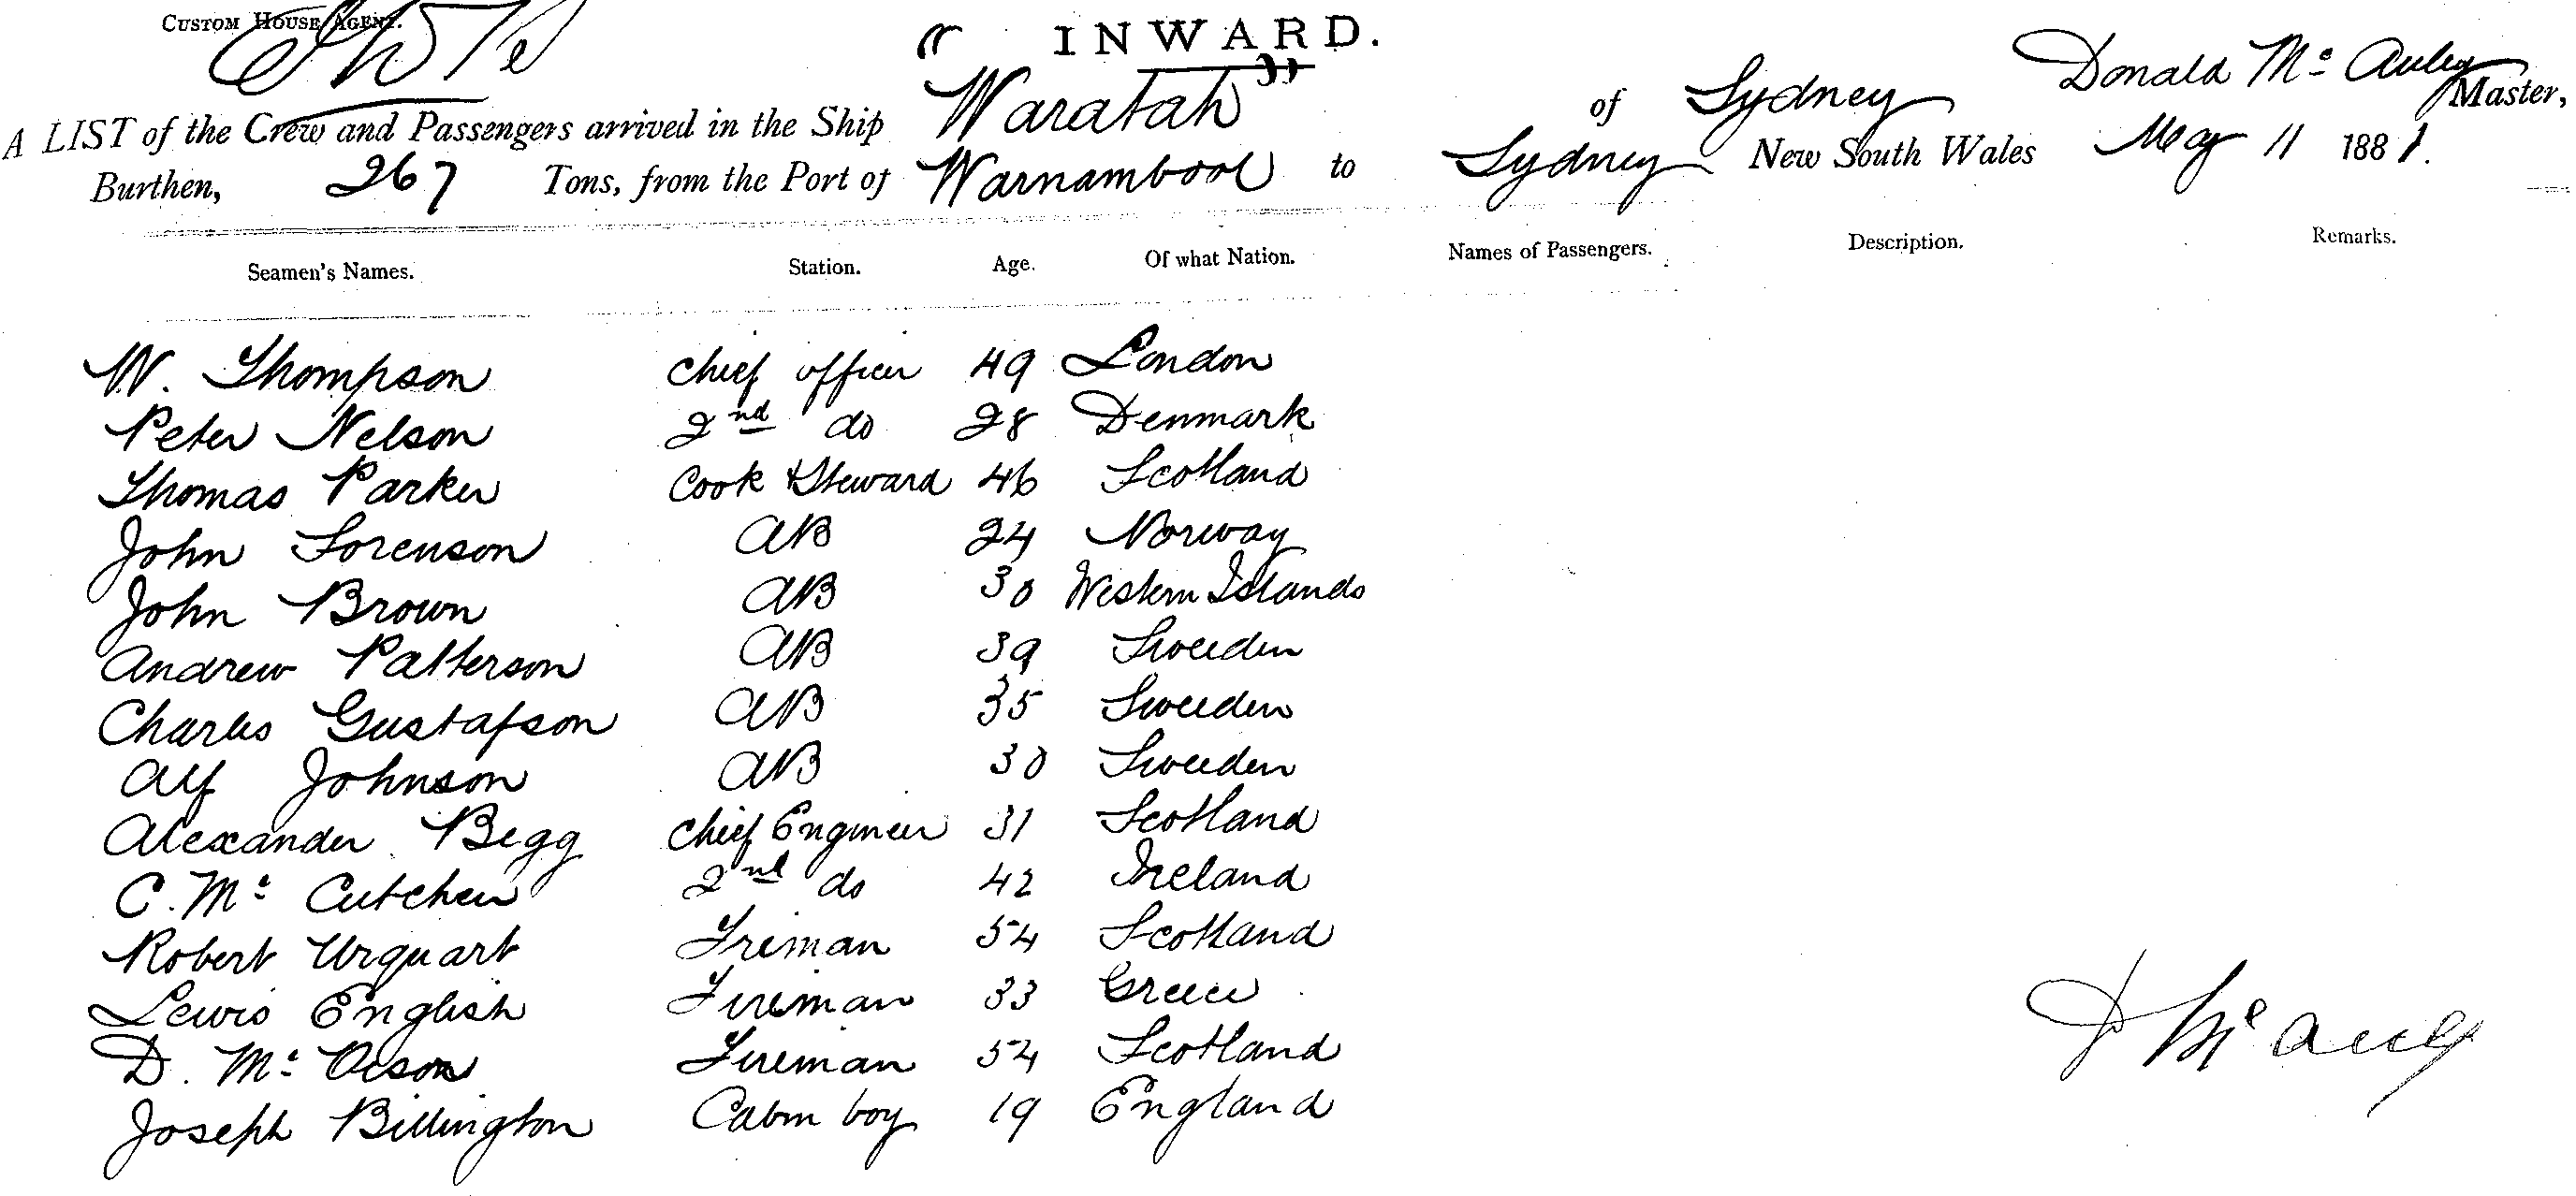 CUSTOM HOUSE AGENT.
"INWARD.
A LIST of the Crew and Passengers arrived in the Ship "Waratah" of Sydney Donald Mc Auley Master,
Burthen, 267 Tons, from the Port of Warnambool to Sydney New South Wales May 11 1881.
Seamen's Names. Station. Age. Of what Nation. Names of Passengers. Description. Remarks.
W. Thompson Chief officer 49 London
Peter Nelson 2nd do 28 Denmark
Thomas Parker Cook & Steward 46 Scotland
John Sorenson AB 24 Norway
John Brown AB 30 Western Islands
Andrew Patterson AB 39 Sweeden
Charles Gustafson AB 35 Sweeden
Alf Johnson AB 30 Sweeden
Alexander Begg Chief Engineer 31 Scotland
C. Mc Cutchen 2nd do 42 Ireland
Robert Urquart Fireman 54 Scotland
Lewis English Fireman 33 Greece
D. Mc 54 Fireman Scotland
Joseph Billington Cabin boy 19 England
D McAuley